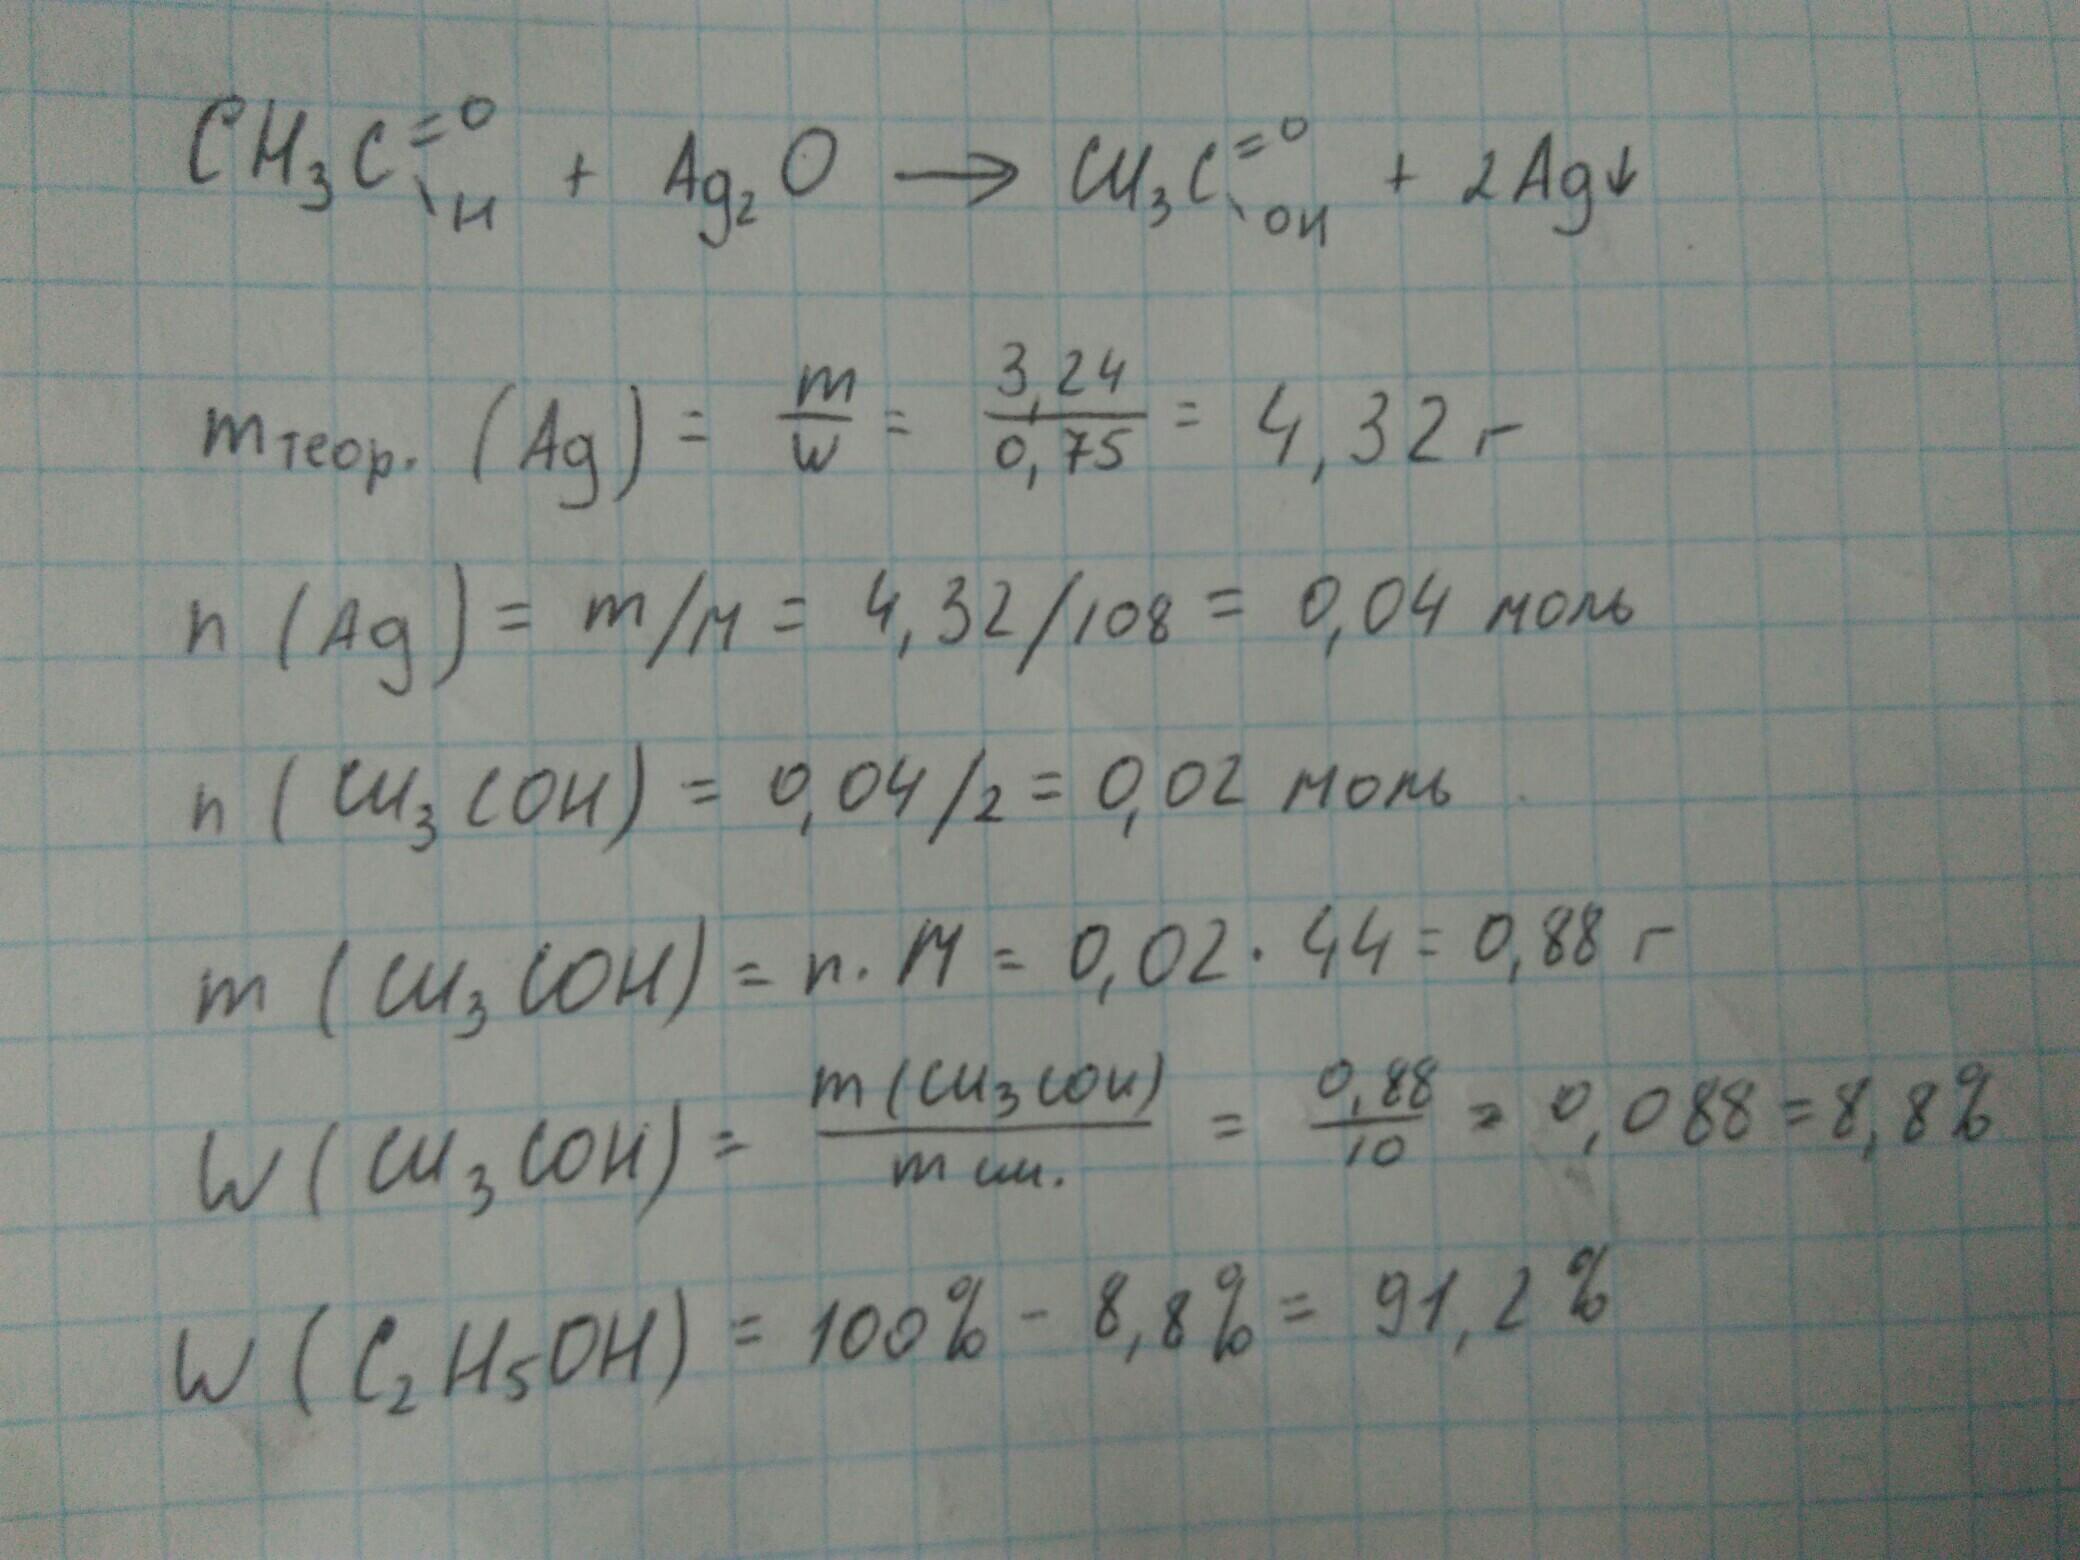 CH₃C=O\H + Ag₂O → CH₃C=O\OH + 2Ag↓
mтеор. (Ag) = m/w = 3,24/0,75 = 4,32 г
n (Ag) = m/M = 4,32/108 = 0,04 моль
n (CH₃COH) = 0,04/2 = 0,02 моль
m (CH₃COH) = n · M = 0,02 · 44 = 0,88 г
W (CH₃COH) = m (CH₃COH)/m см. = 0,88/10 = 0,088 = 8,8%
W (C₂H₅OH) = 100% - 8,8% = 91,2%